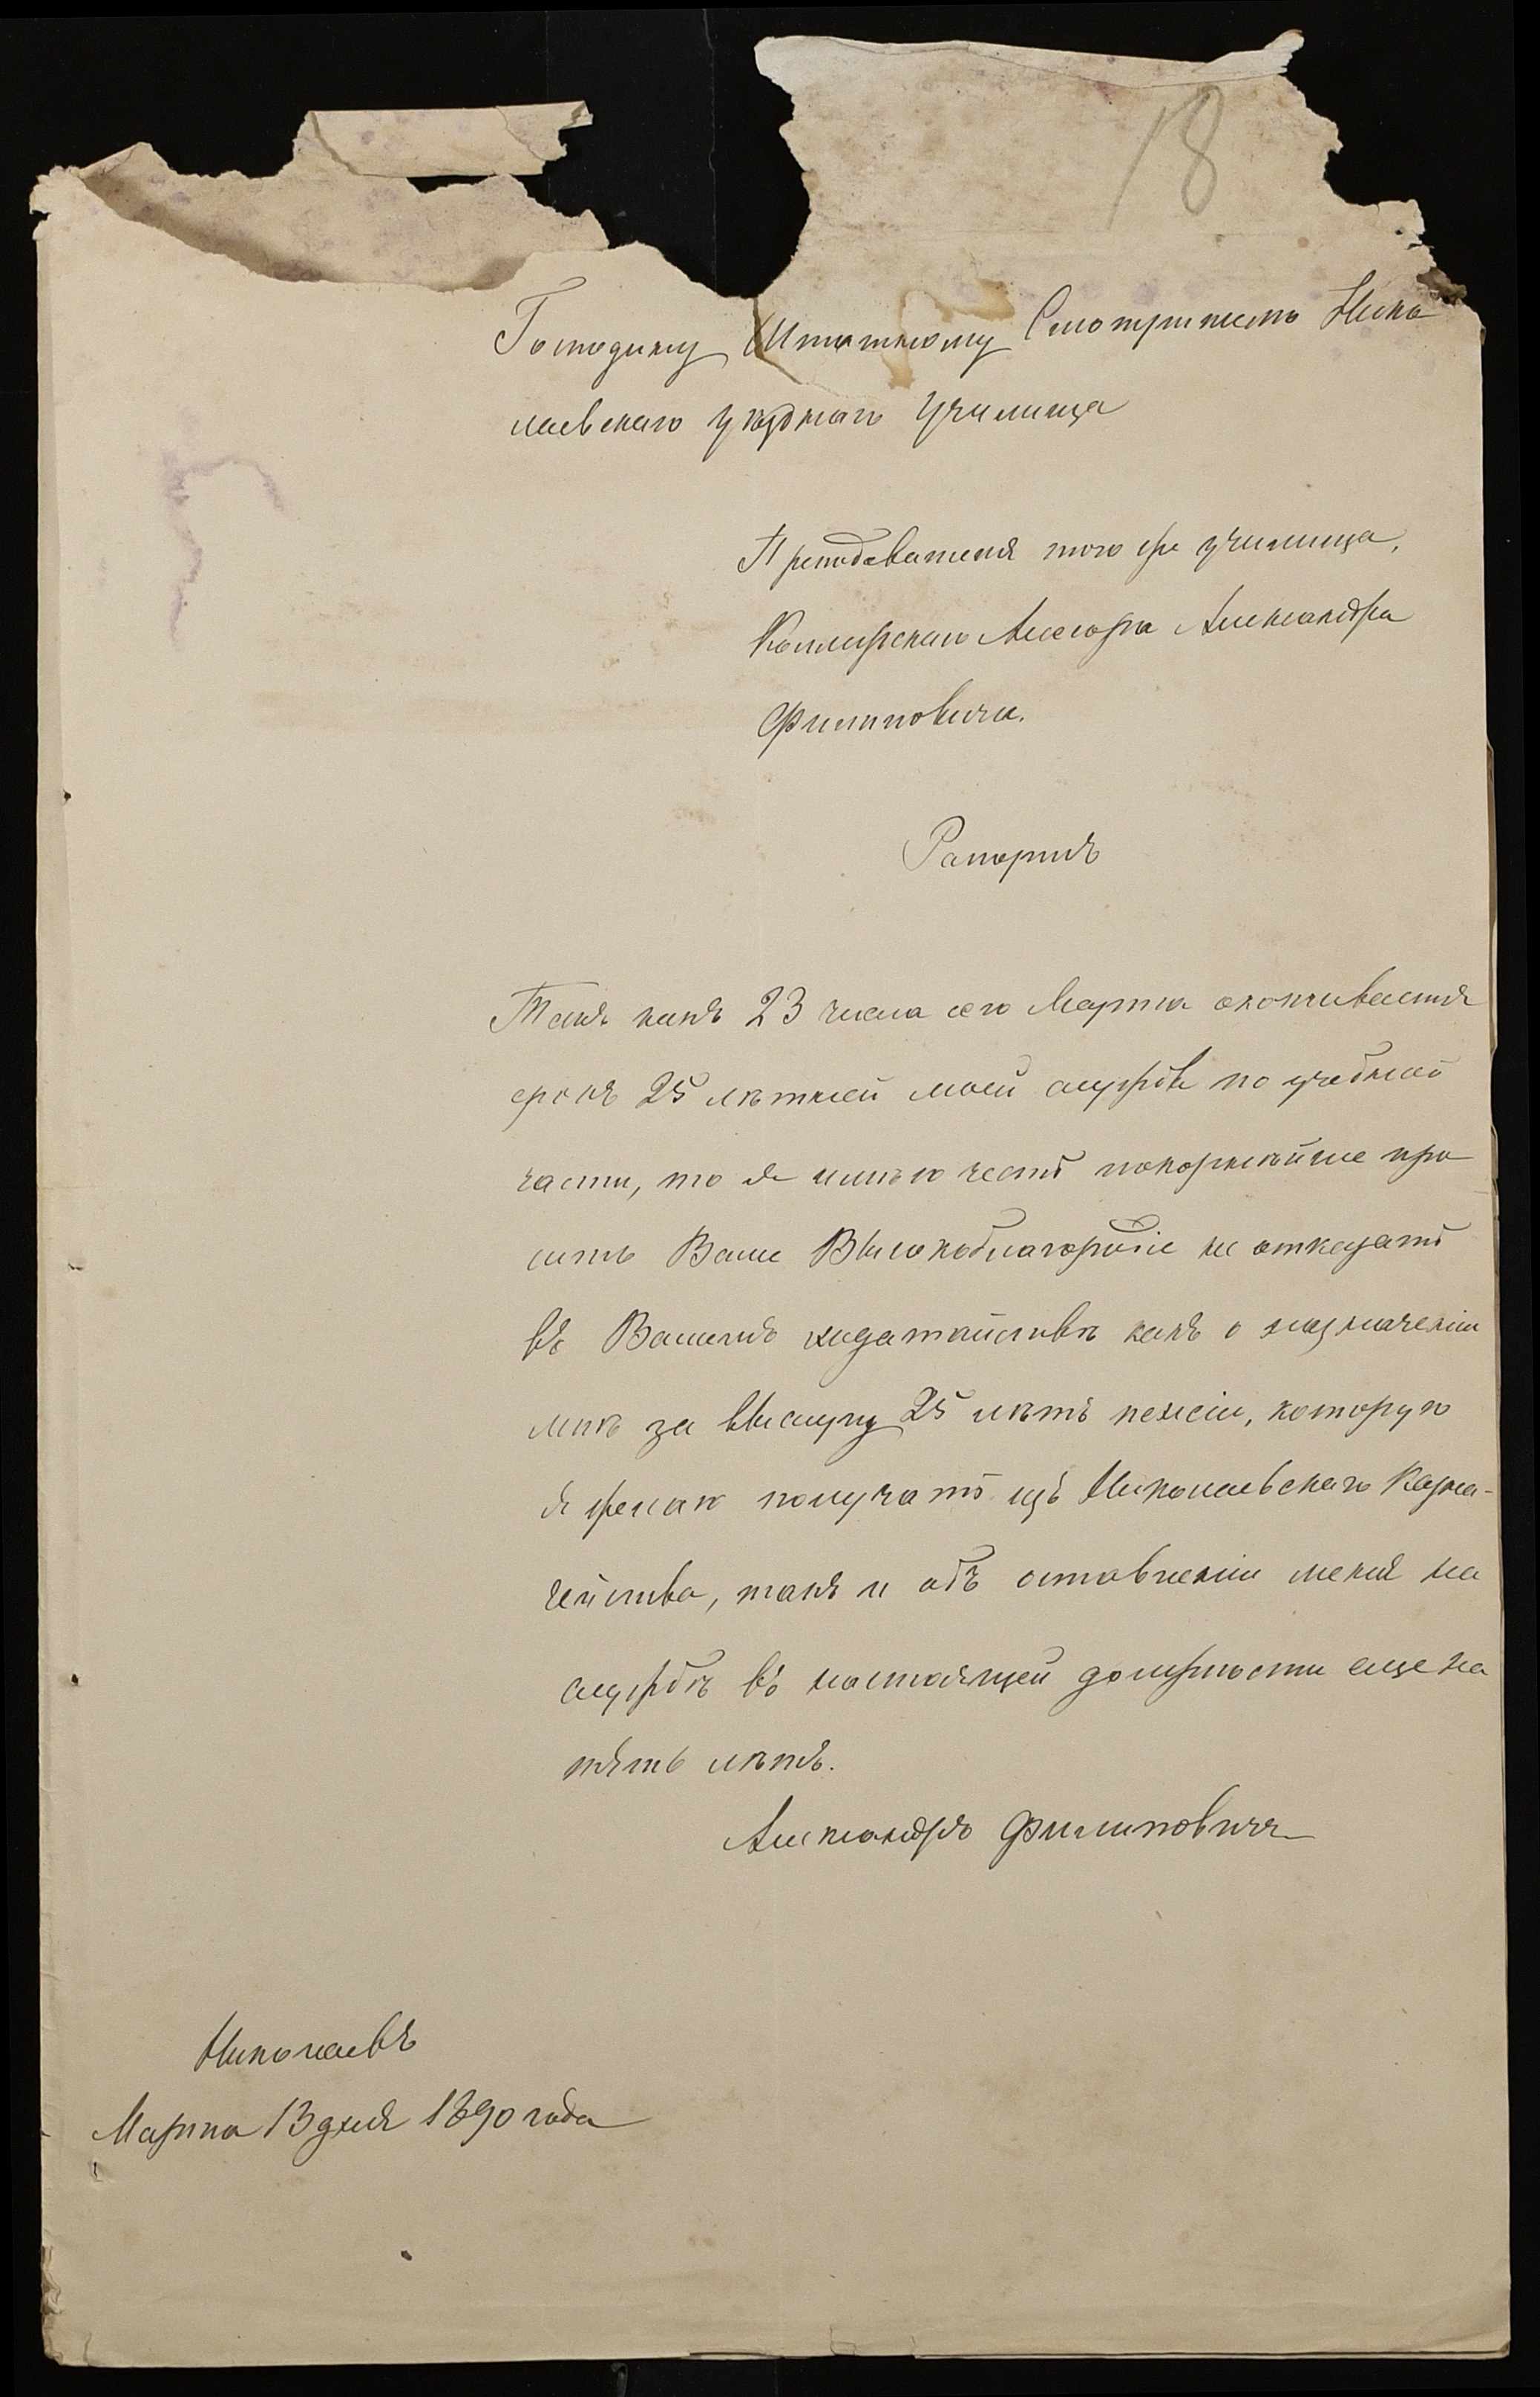 18
Господину Штатному Смотрителю Нико
лаевскаго уѣзднаго училища
Преподавателя того же училища,
Коллежскаго Ассесора Александра
Филиповича.
Рапортъ
Такъ какъ 23 числа сего Марта оканчивается
срокъ 25 лѣтней моей службѣ по учебной
части, то я имѣю честь покорнѣйше про
сить Ваше Высокоблагородіе не отказать
въ Вашемъ ходатайствѣ какъ о назначеніи
мнѣ за выслугу 25 лѣтъ пенсіи, которую
я желаю получать изъ Николаевскаго Казна-
чейства, такъ и объ оставленіи меня на
службѣ въ настоящей должности еще на
пять лѣтъ.
Александръ Филиповичъ
Николаевъ
Марта 13 дня 1890 года